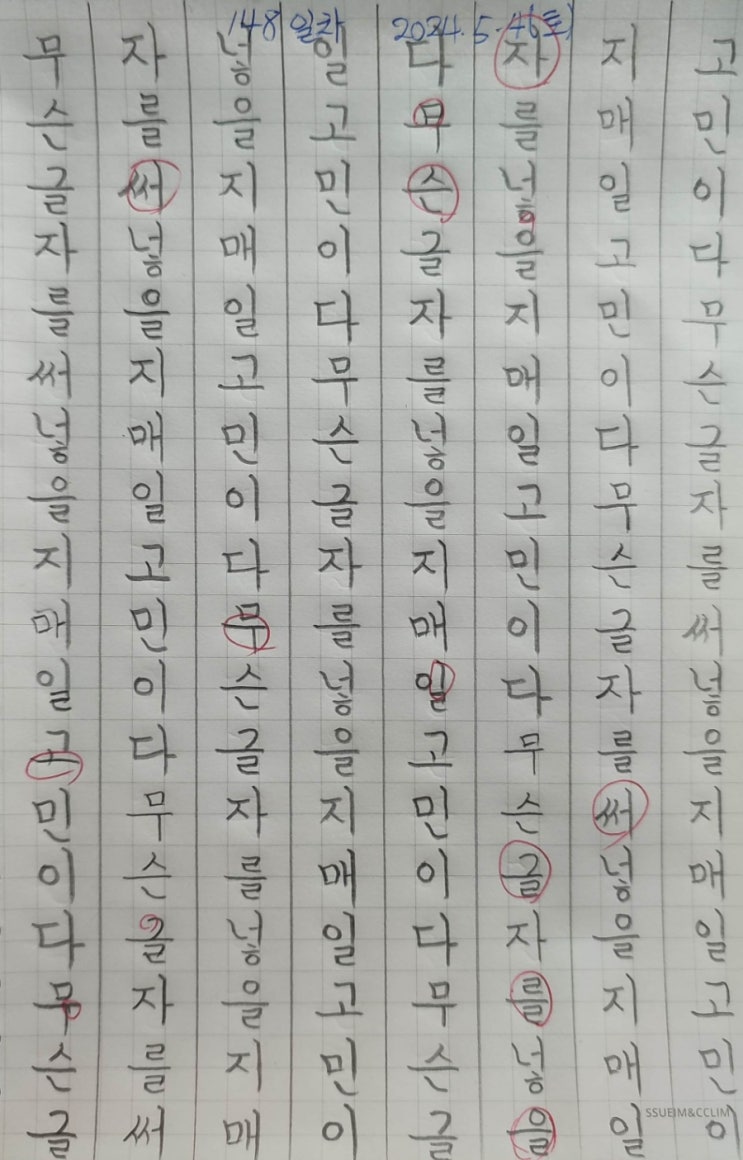 148일차 2024.5.4(토)
무슨글자를써넣을지매일고민이다무슨글
자를써넣을지매일고민이다무슨글자를써
넣을지매일고민이다무슨글자를넣을지매
일고민이다무슨글자를넣을지매일고민이
다무슨글자를넣을지매일고민이다무슨글
자를넣을지매일고민이다무슨글자를넣을
지매일고민이다무슨글자를써넣을지매일
고민이다무슨글자를써넣을지매일고민이
SSUEIM&CCLIM